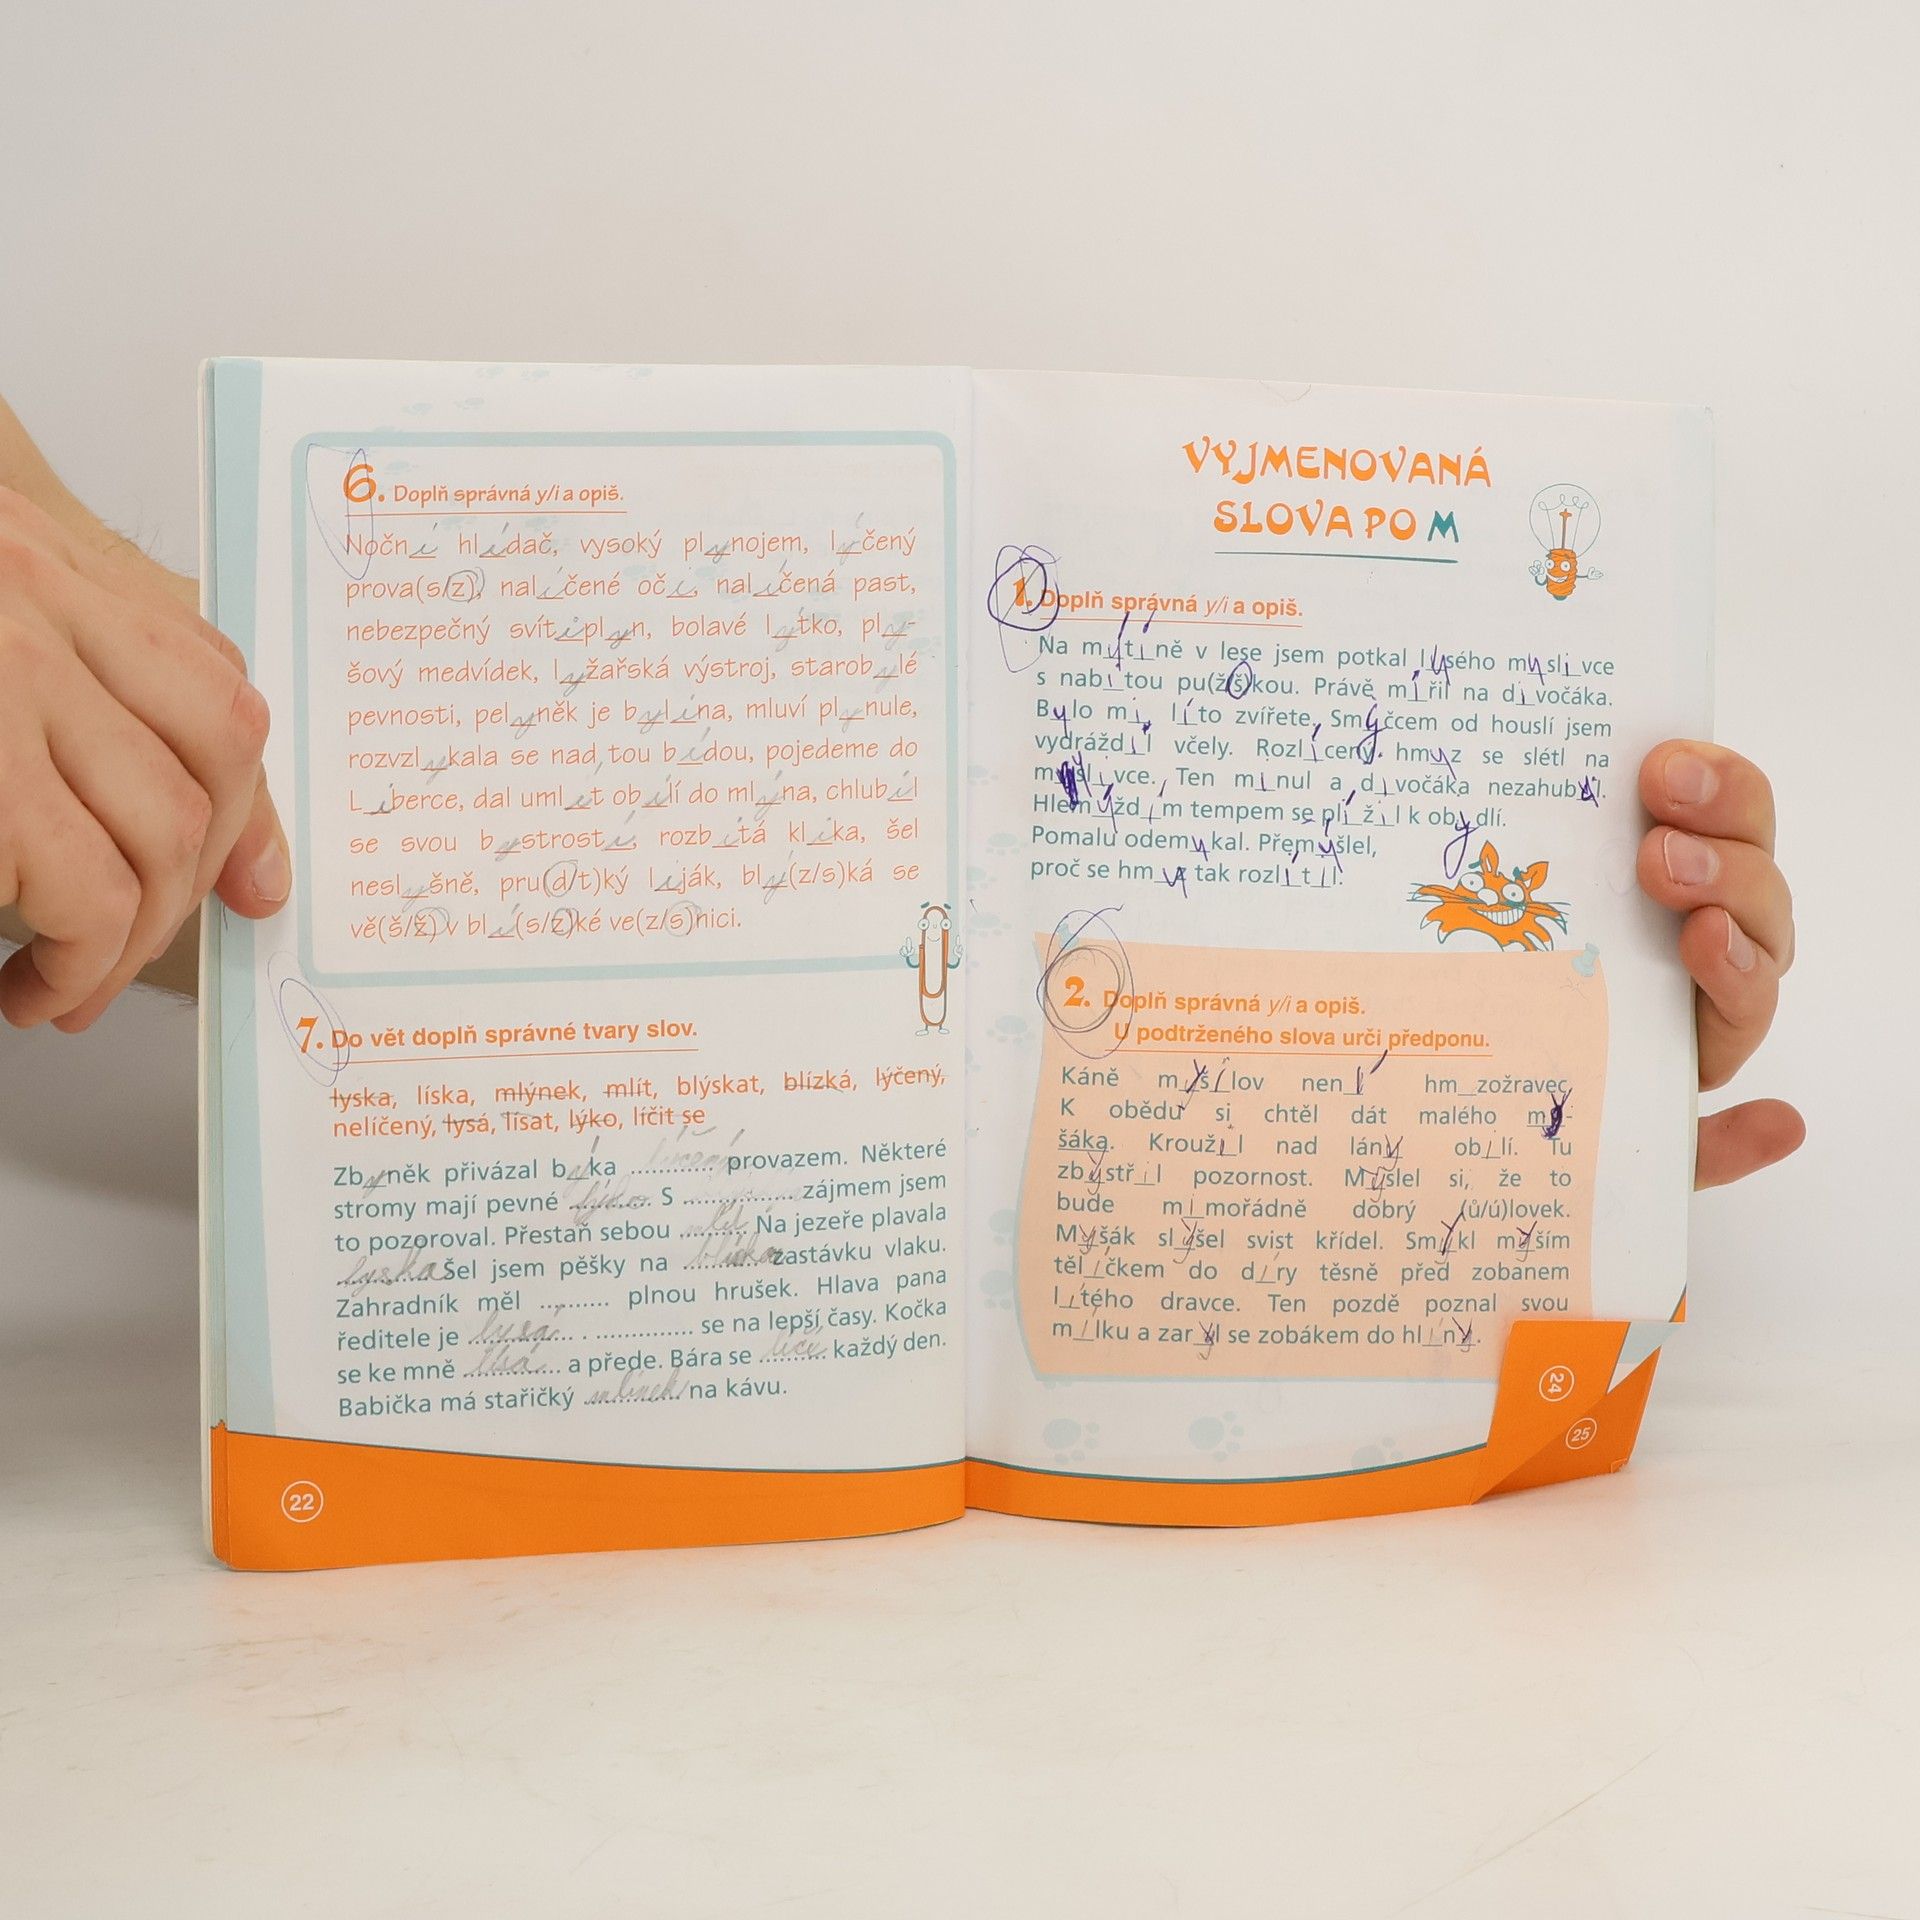 6. Doplň správná y/i a opiš.
Noční hlídač, vysoký plynojem, lýčený
prova(s/z), nalíčené oči, nalíčená past,
nebezpečný svítiplyn, bolavé lýtko, ply-
šový medvídek, lyžařská výstroj, starobylé
pevnosti, pelyněk je bylina, mluví plynule,
rozvzlykala se nad tou bídou, pojedeme do
Liberce, dal umlít obilí do mlýna, chlubil
se svou bystrostí, rozbitá klika, šel
neslyšně, pru(d/t)ký liják, blý(z/s)ká se
vě(š/ž) v blí(s/z)ké ve(z/s)nici.
7. Do vět doplň správné tvary slov.
lyska, líska, mlýnek, mlít, blýskat, blízká, lýčený,
nelíčený, lysá, lísat, lýko, líčit se
Zbyněk přivázal býka .............. provazem. Některé
stromy mají pevné lýko. S .................. zájmem jsem
to pozoroval. Přestaň sebou mlít. Na jezeře plavala
lyska. Šel jsem pěšky na blízkou zastávku vlaku.
Zahradník měl .......... plnou hrušek. Hlava pana
ředitele je lysá. .............. se na lepší časy. Kočka
se ke mně lísá a přede. Bára se líčí každý den.
Babička má stařičký mlínek na kávu.
22
VYJMENOVANÁ
SLOVA PO M
1. Doplň správná y/i a opiš.
Na mýtině v lese jsem potkal lysého myslivce
s nabitou pu(ž/š)kou. Právě mířil na divočáka.
Bylo mi líto zvířete. Smýčcem od houslí jsem
vydráždil včely. Rozlícený hmyz se slétl na
myslivce. Ten minul a divočáka nezahubil.
Hlemýždím tempem se plížil k obydlí.
Pomalu odemykal. Přemýšlel,
proč se hmyz tak rozlítil.
2. Doplň správná y/i a opiš.
U podtrženého slova urči předponu.
Káně myšilov není hm_zožravec.
K obědu si chtěl dát malého my-
šáka. Kroužil nad lány obilí. Tu
zbystřil pozornost. Myslel si, že to
bude mimořádně dobrý (ů/ú)lovek.
Myšák slyšel svist křídel. Smýkl myším
tělíčkem do díry těsně před zobanem
lítého dravce. Ten pozdě poznal svou
mílku a zaryl se zobákem do hlíny.
24
25